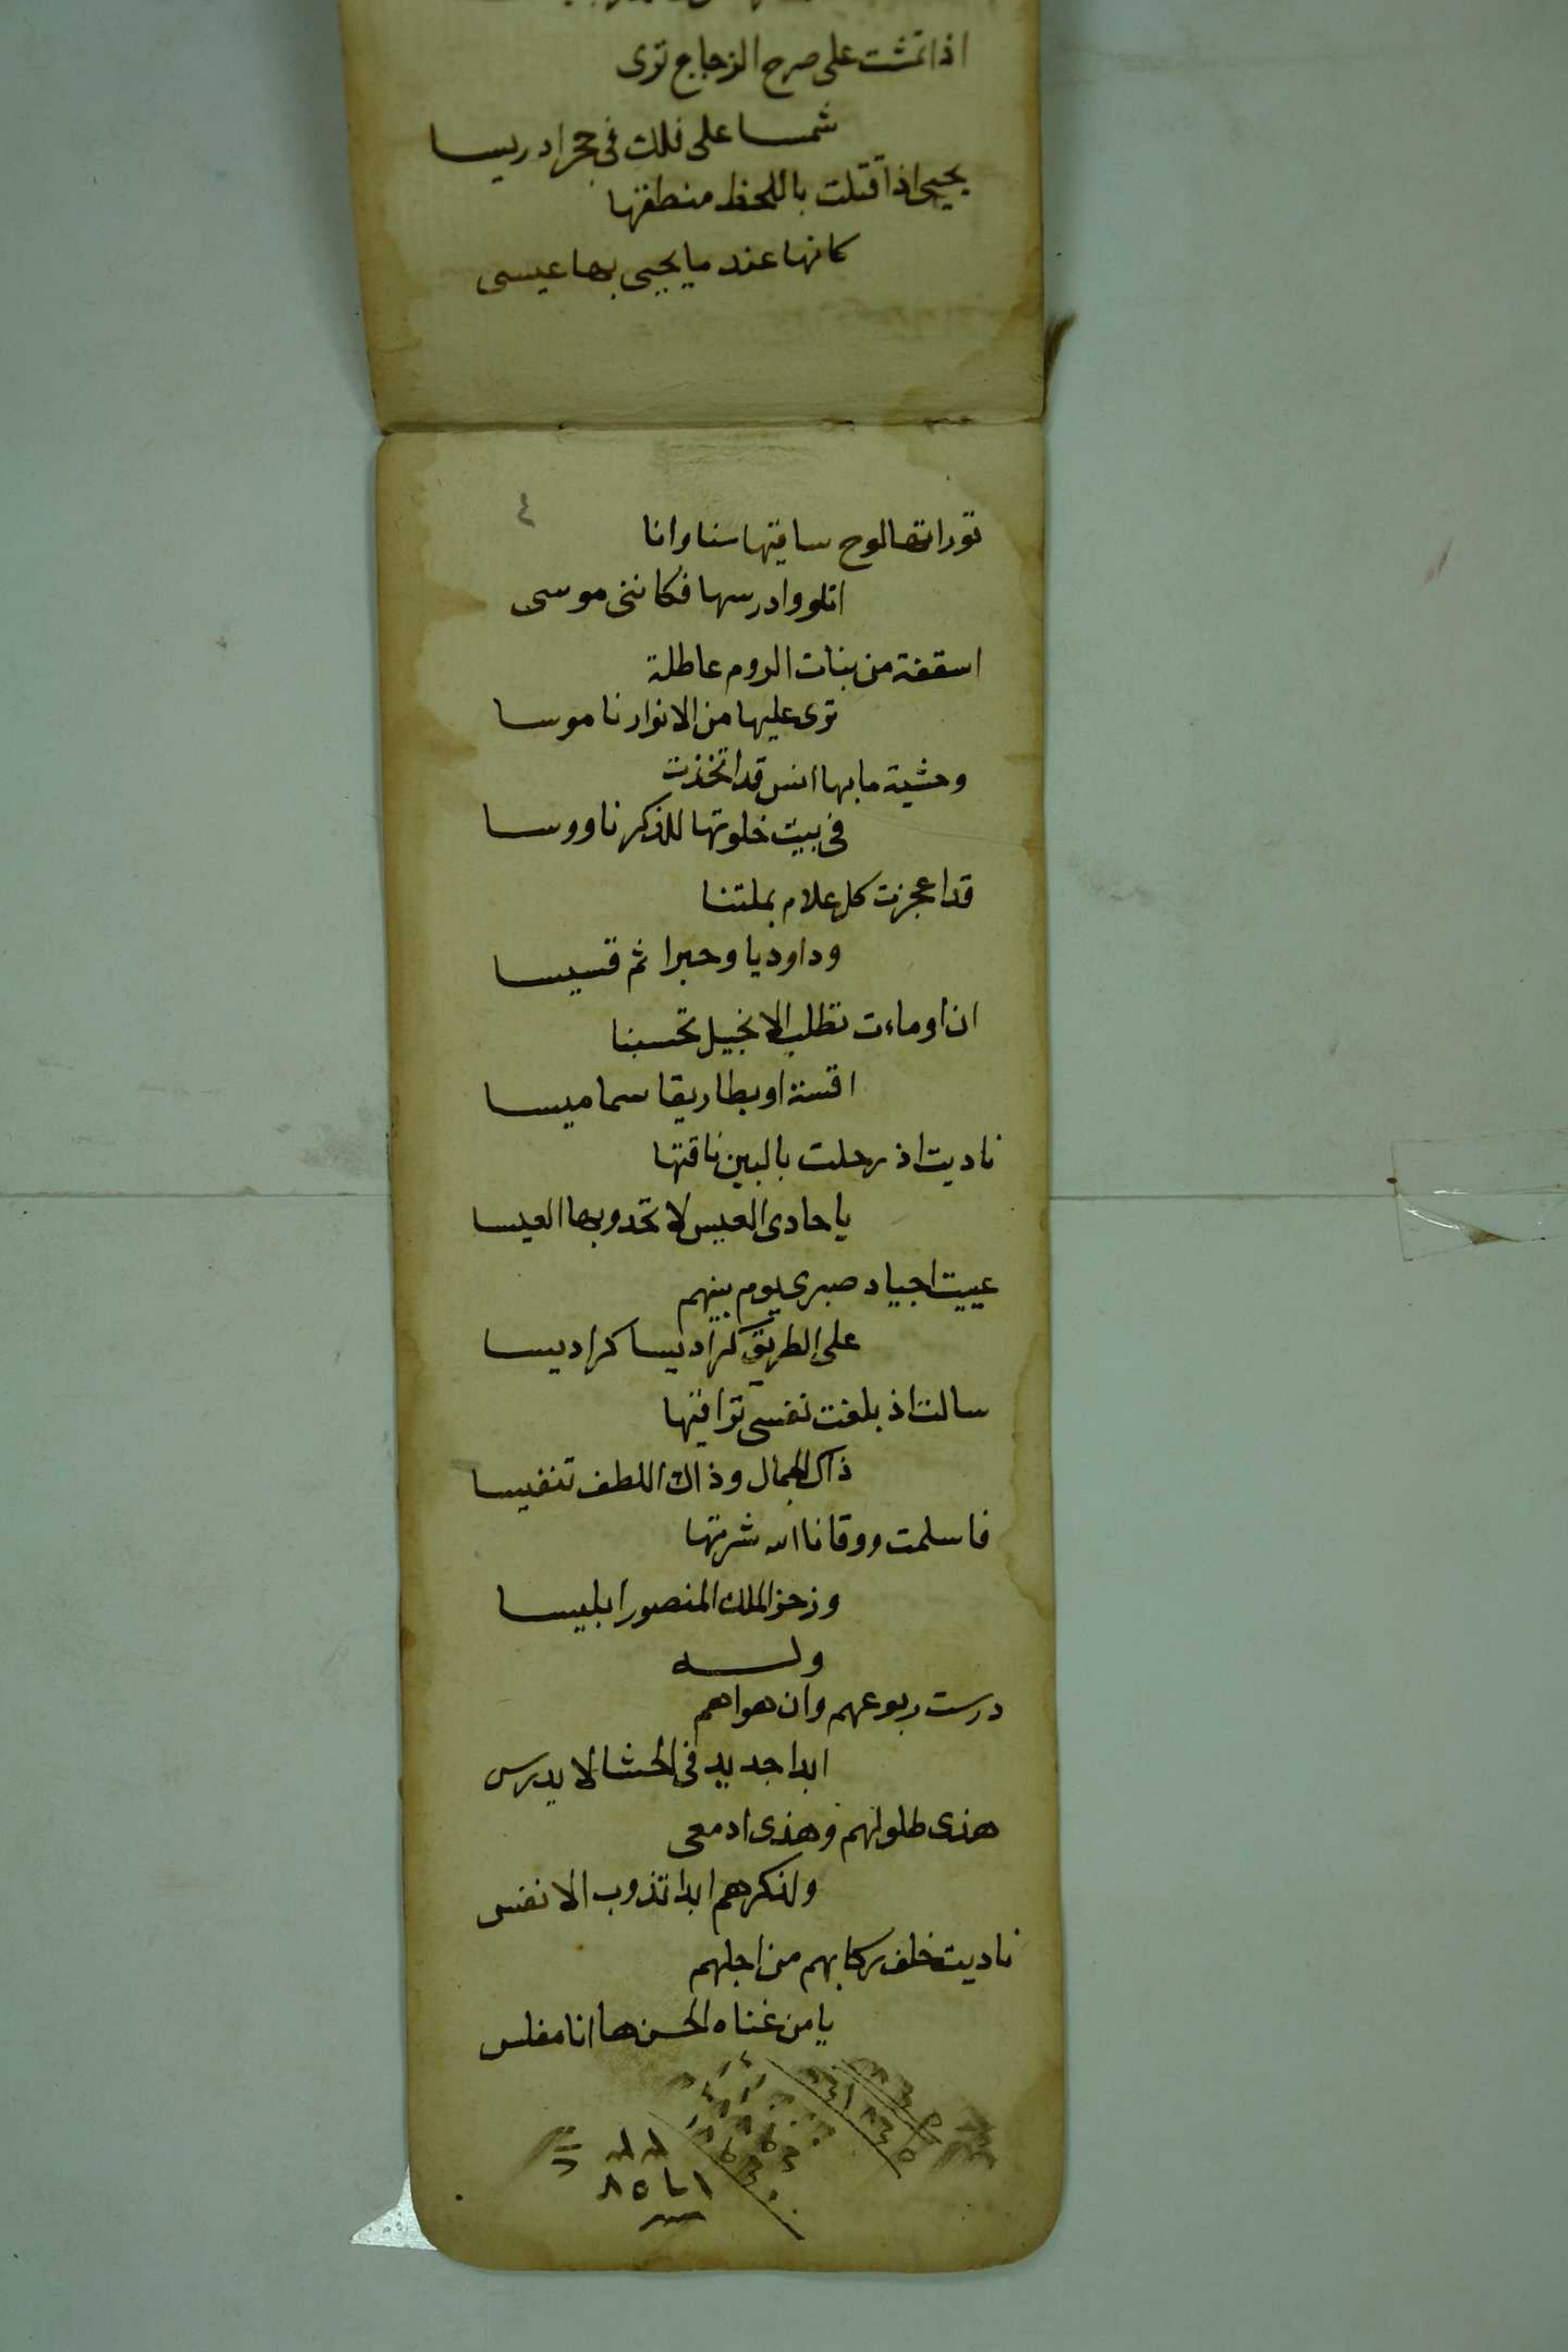 اذا تمشت على صرح الزجاج ترى
شمسا على فلك في حجر ادريسا
يحيى اذا قتلت باللحظ منطقها
كانها عند ما يحيى بها عيسى
٤
توراتها لوح ساقيها سنا وانا
اتلو وادرسها فكاننى موسى
اسقفة من بنات الروم عاطلة
ترى عليها من الانوار ناموسا
وحشية ما بها انس قد اتخذت
في بيت خلوتها للذكر ناووسا
قد اعجزت كل علام بملتنا
وداوديا وحبرا ثم قسيسا
ان اوماءت تطلب الانجيل تحسبنا
اقسة او بطاريقا سماميسا
ناديت اذ رحلت بالبين ناقتها
يا حادى العيس لا تحدو بها العيسا
عييت اجياد صبرى يوم بينهم
على الطريق كراديسا كراديسا
سالت اذ بلغت نفسى تراقيها
ذاك الجمال وذاك اللطف تنفيسا
فاسلمت ووقانا الله شرتها
وزحزح الملك المنصور ابليسا
وله
درست ربوعهم وان هواهم
ابدا جديد في الحشا لا يدرس
هذى طلولهم وهذى ادمعى
ولذكرهم ابدا تذوب الانفس
ناديت خلف ركابهم من اجلهم
يا من غناه الحسن ها انا مفلس